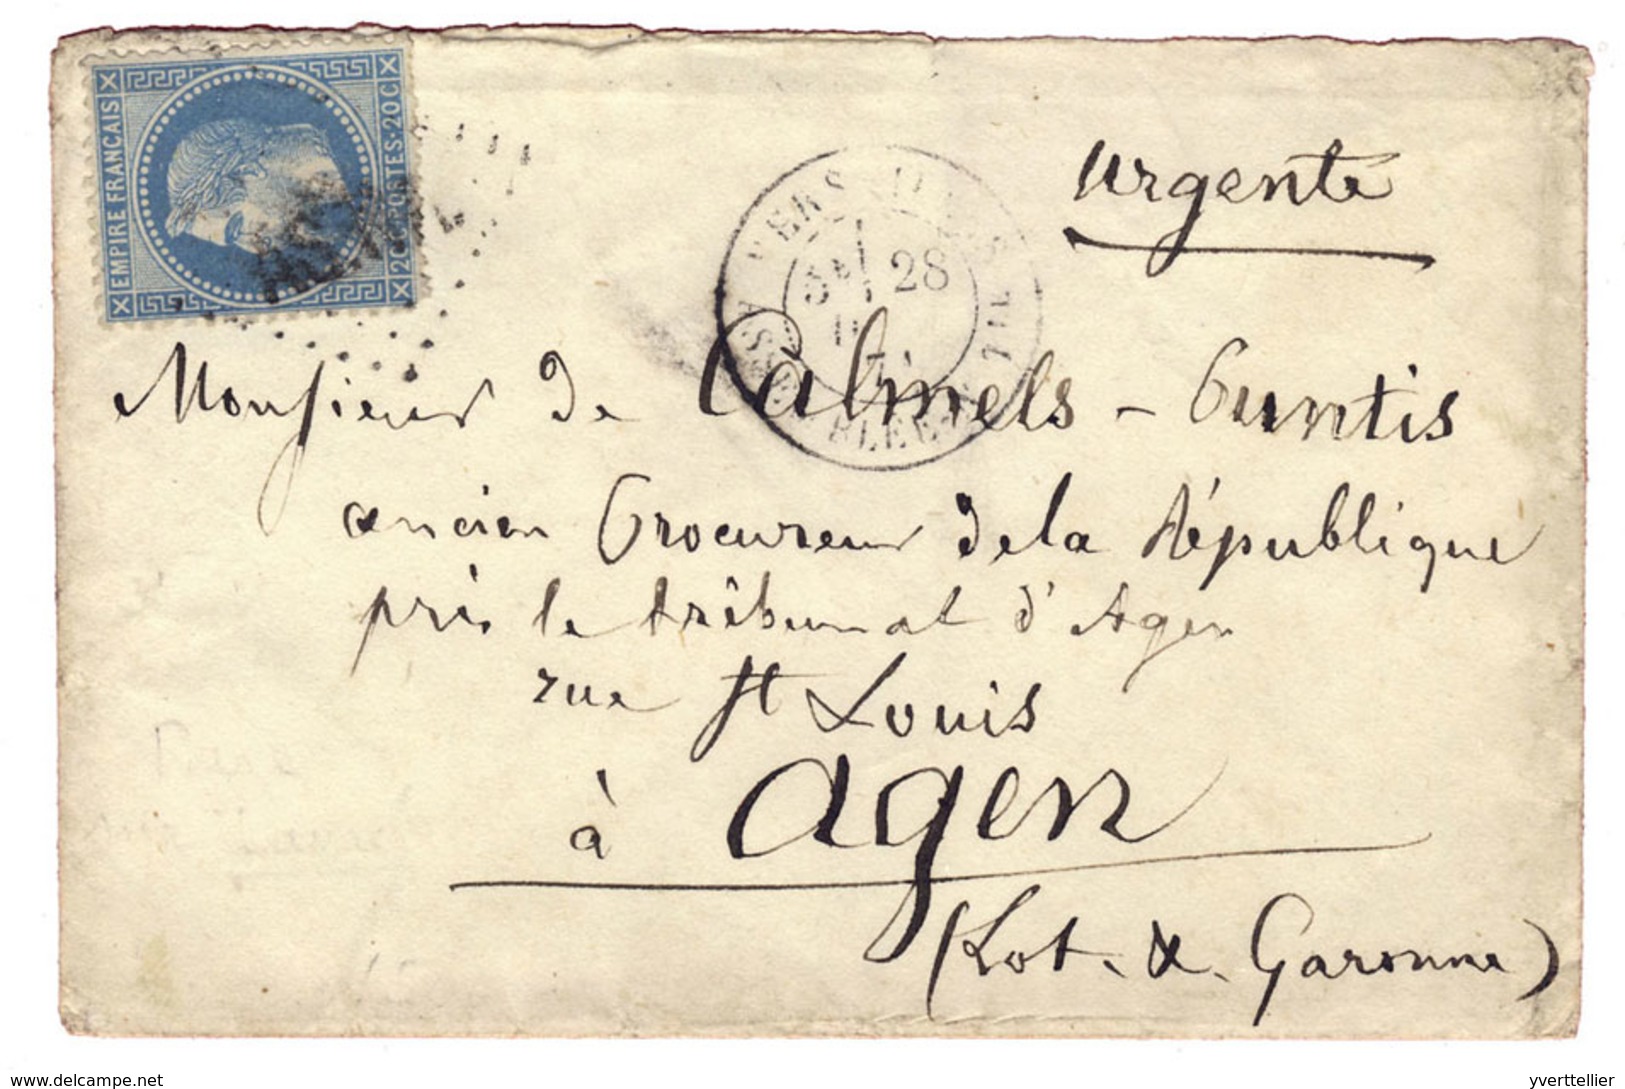 EMPIRE FRANÇAIS
20 C. POSTES. 20 C.
Urgente
28
Monsieur de Calmels - Puntis
ancien Procureur de la République
près le tribunal d'Agen
rue St Louis
à Agen
(Lot. & Garonne)
www.delcampe.net
yverttellier